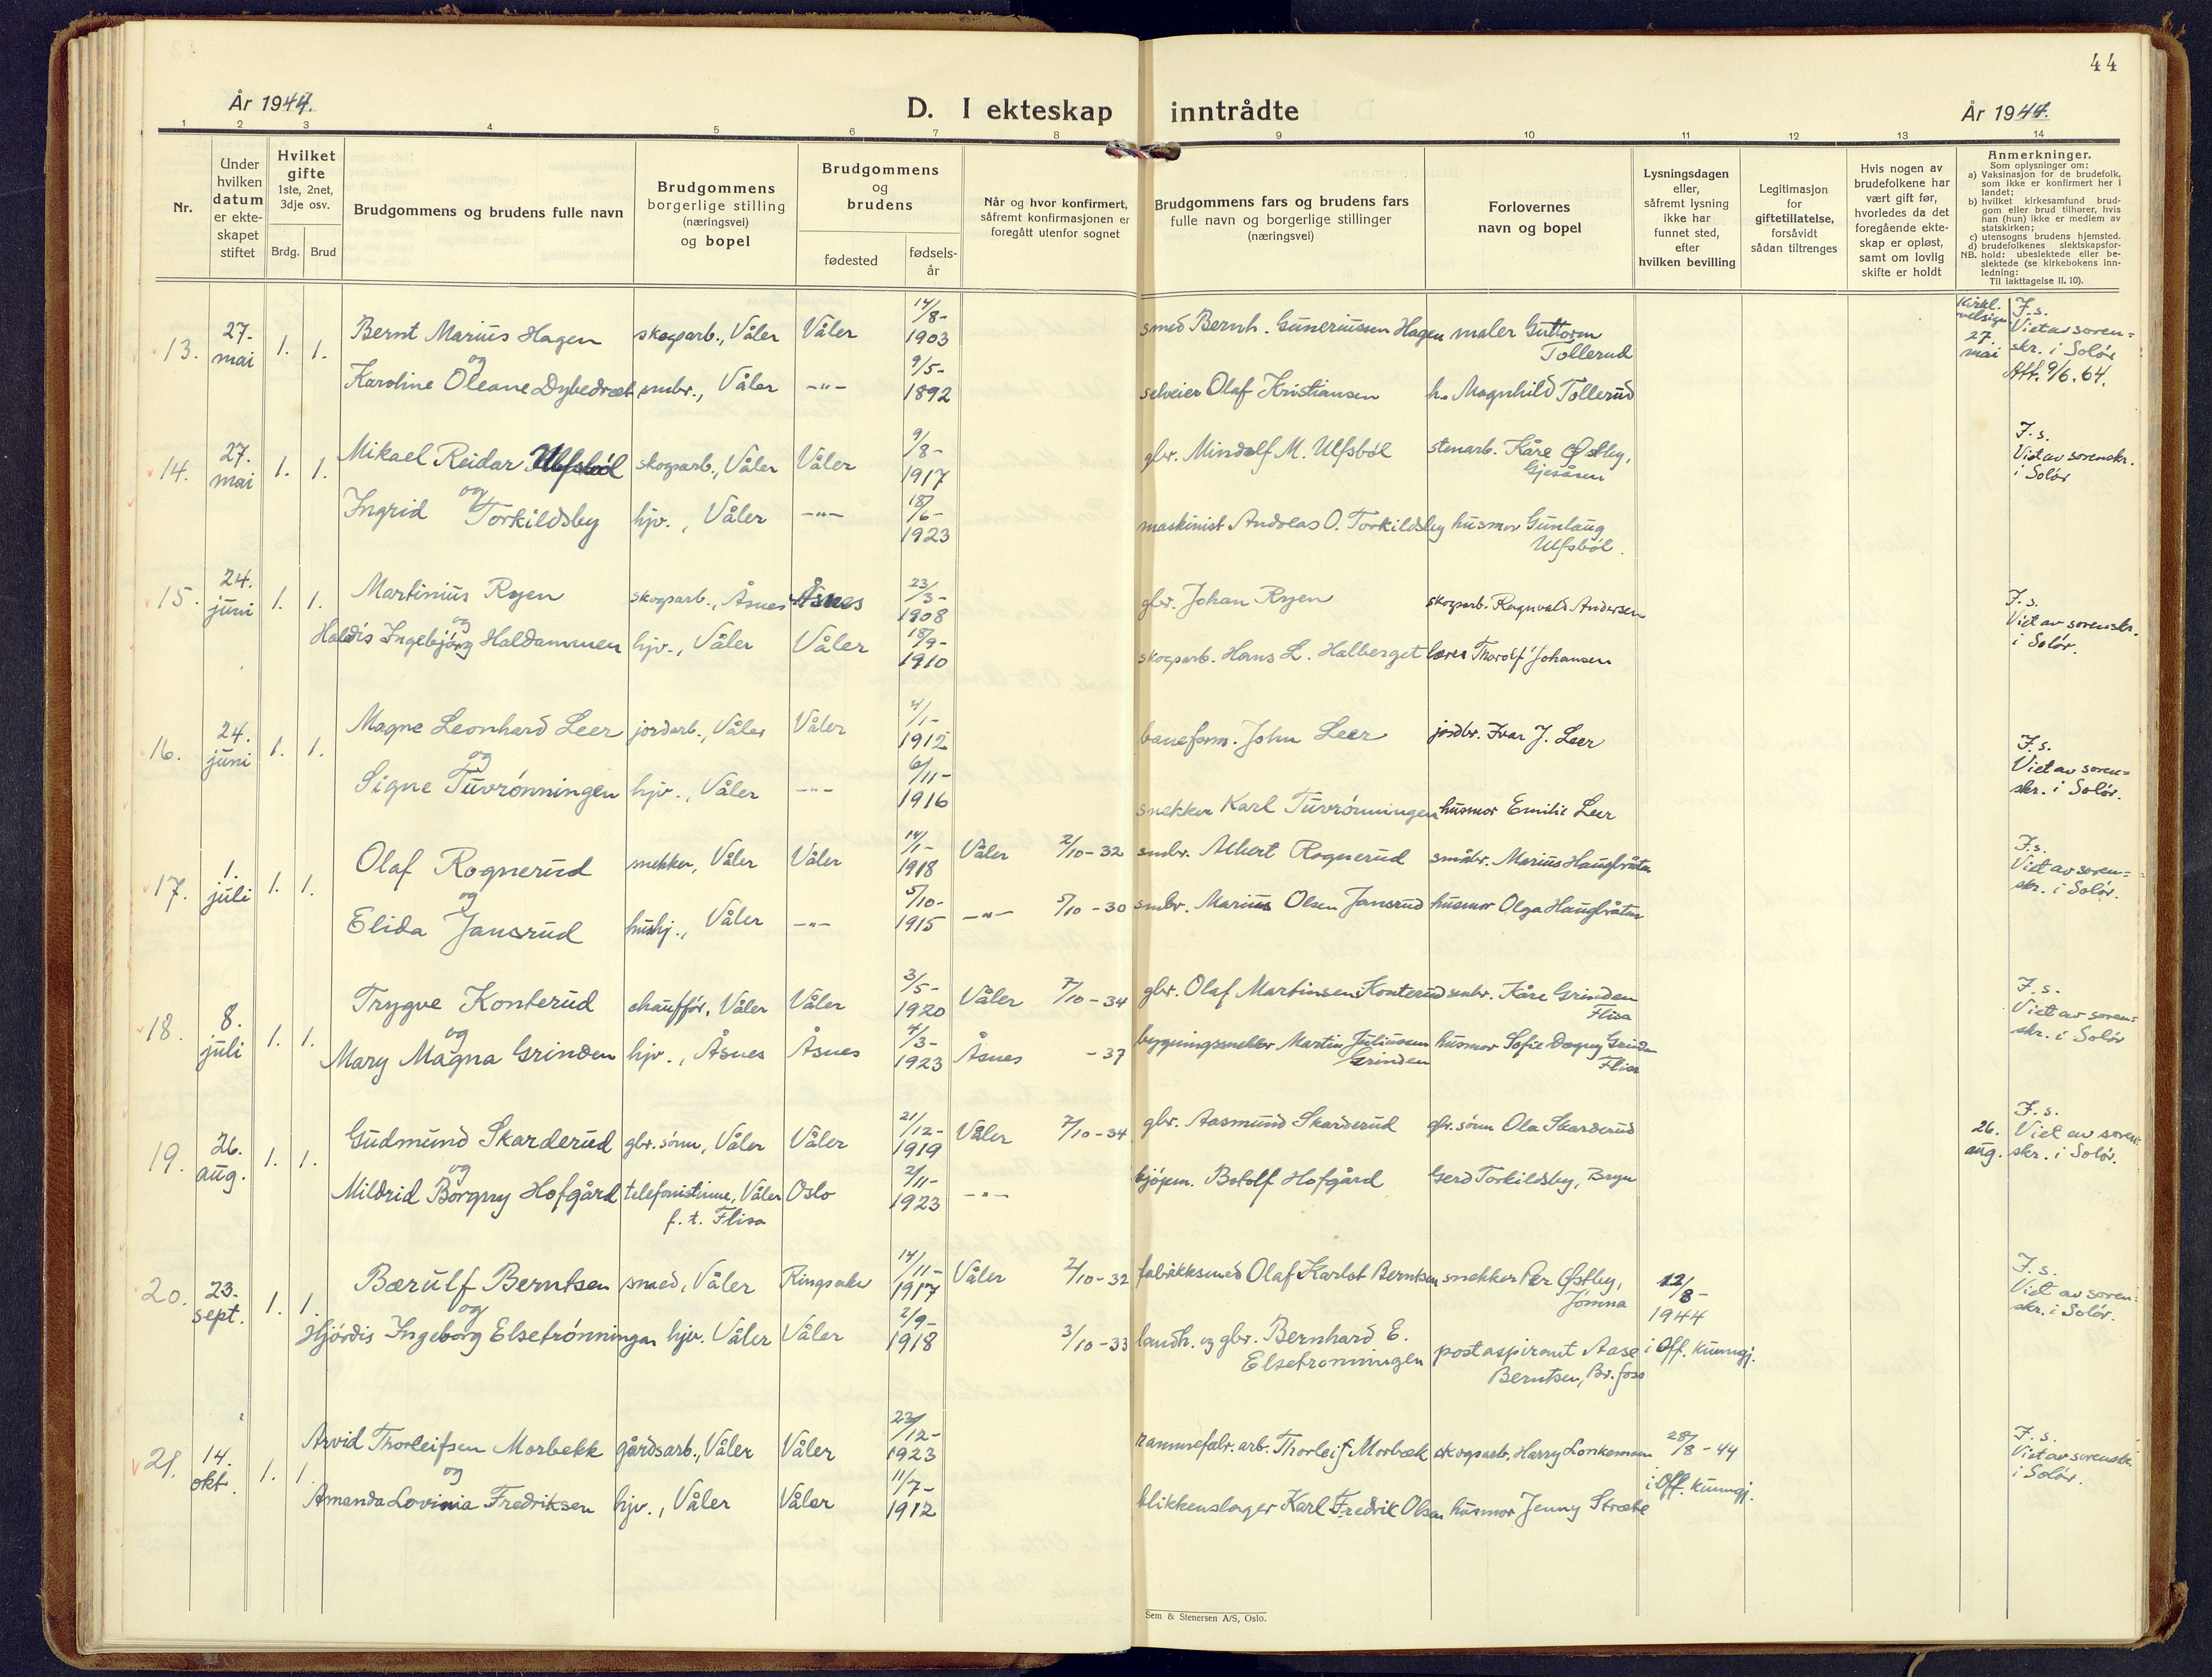 44
År 1944.
D. I ekteskap inntrådte
År 1944.
1 2 3 4 5 6 7 8 9 10 11 12 13 14
Nr.
Under hvilken datum er ekte-skapet stiftet
Hvilket gifte 1ste, 2net, 3dje osv.
Brdg. Brud
Brudgommens og brudens fulle navn
Brudgommens borgerlige stilling (næringsvei) og bopel
Brudgommens og brudens
fødested
fødsels-år
Når og hvor konfirmert, såfremt konfirmasjonen er foregått utenfor sognet
Brudgommens fars og brudens fars fulle navn og borgerlige stillinger (næringsvei)
Forlovernes navn og bopel
Lysningsdagen eller, såfremt lysning ikke har funnet sted, efter hvilken bevilling
Legitimasjon for giftetillatelse, forsåvidt sådan tiltrenges
Hvis nogen av brudefolkene har vært gift før, hvorledes da det foregående ekte-skap er opløst, samt om lovlig skifte er holdt
Anmerkninger.
Som oplysninger om:
a) Vaksinasjon for de brudefolk, som ikke er konfirmert her i landet;
b) hvilket kirkesamfund brud-gom eller brud tilhører, hvis han (hun) ikke er medlem av statskirken;
c) utensogns brudens hjemsted.
d) brudefolkenes slektskapsfor-hold: ubeslektede eller be-slektede (se kirkebokens inn-ledning:
NB. Til iakttagelse II. 10).
13. 27. mai 1. 1. Bernt Marius Hagen skogsarb., Våler Våler 14/8- 1903 smed Bernh. Guneriussen Hagen maler Guttorm Tollerud
og
Karoline Oleane Dybedræt smbr., Våler -"- 9/5- 1892 selveier Olaf Kristiansen h. Magnhild Tollerud
Kirkl. velsign. 27. mai F.s. Viet av soren=skr. i Solør Att. 9/6.64.
14. 27. mai 1. 1. Mikael Reidar Ulfsbøl skogsarb., Våler Våler 9/8- 1917 gbr. Mindolf M. Ulfsbøl stenarb. Kåre Østby, Gjesåsen
og
Ingrid Torkildsby hjv., Våler -"- 18/6- 1923 maskinist Andreas O. Torkildsby husmor Gunlaug Ulfsbøl.
F.s. Viet av sorenskr. i Solør
15. 24. juni 1. 1. Martinius Ryen skogsarb., Åsnes Åsnes 23/3- 1908 gbr. Johan Ryen skogsarb. Ragnvald Andersen
og
Haldis Ingebjørg Haldammen hjv., Våler Våler 18/9- 1910 skogsarb. Hans L. Halberget lærer Thorolf Johansen
F.s. Viet av sorenskr. i Solør.
16. 24. juni 1. 1. Magne Leonhard Leer jordarb., Våler Våler 4/1- 1912 baneform. John Leer jordbr. Ivar J. Leer
og
Signe Tuvrønningen hjv., Våler -"- 6/11- 1916 snekker Karl Tuvrønningen husmor Emilie Leer
F.s. Viet av soren=skr. i Solør.
17. 1. juli 1. 1. Olaf Rognerud snekker, Våler Våler 14/1- 1918 Våler 2/10-32 smbr. Albert Rognerud småbr. Marius Haugbråten
og
Elida Jansrud hushj., Våler -"- 5/10- 1915 -"- 5/10-30 smbr. Marius Olsen Jansrud husmor Olga Haugbråten
F.s. Viet av soren=skr. i Solør.
18. 8. juli 1. 1. Trygve Konterud chauffør, Våler Våler 3/5- 1920 Våler 7/10-34 gbr. Olaf Martinsen Konterud smbr. Kåre Grinden Flisa
og
Mary Magna Grinden hjv., Åsnes Åsnes 4/3- 1923 Åsnes -37 bygningssnekker Martin Juliussen Grinden husmor Sofie Dagny Grinden Flisa
F.s. Viet av soren=skr. i Solør
19. 26. aug. 1. 1. Gudmund Skarderud gbr. sønn, Våler Våler 21/12- 1919 Våler 7/10-34 gbr. Aasmund Skarderud gbr. sønn Ola Skarderud
og
Mildrid Borgny Hofgård telefonistinne, Våler f.t. Flisa Oslo 2/11- 1923 -"- kjøpm. Botolf Hofgård Gerd Torkildsby, Bryn
26. aug. F.s. Viet av soren=skr. i Solør.
20. 23. sept. 1. 1. Bærulf Berntsen smed, Våler Ringsaker 14/11- 1917 Våler 2/10-32 fabrikksmed Olaf Karlot Berntsen snekker Per Østby, Jømna 12/8- 1944
og
Hjørdis Ingeborg Elsetrønningen hjv. Våler Våler 2/9- 1918 3/10-33 landh. og gbr. Bernhard E. Elsetrønningen postaspirant Aase Berntsen, Br.foss i Off. kunngj.
F.s. Viet av soren=skr. i Solør.
21. 14. okt. 1. 1. Arvid Thorleifsen Morbekk gårdsarb., Våler Våler 23/12- 1923 rammefabr. arb. Thorleif Morbæk skogsarb. Harry Lonkemoen 28/8-44
og
Amanda Lovinia Fredriksen hjv., Våler Våler 11/7- 1912 blikkenslager Karl Fredrik Olsen husmor Jenny Stræte i Off. kunngj.
F.s. Viet av sorenskr. i Solør.
Sem & Stenersen A/S, Oslo.